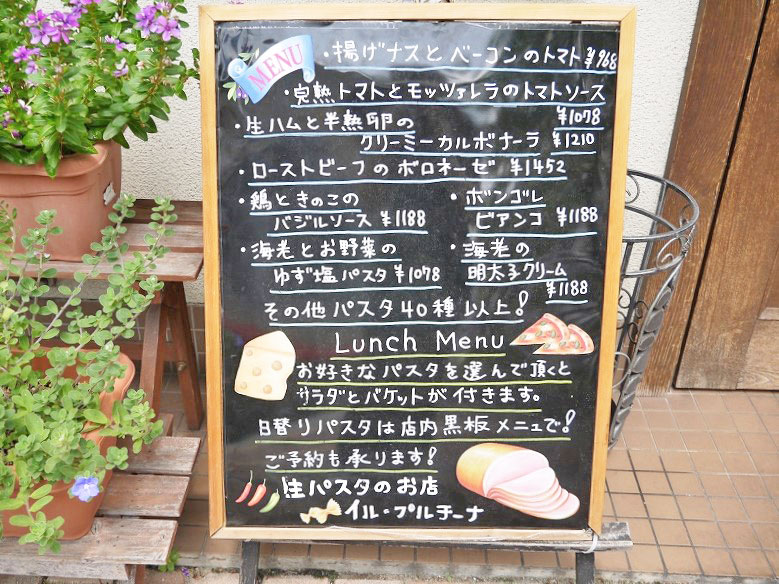 MENU
・揚げナスとベーコンのトマト ¥968
・完熟トマトとモッツァレラのトマトソース
¥1078
・生ハムと半熟卵の
クリーミーカルボナーラ ¥1210
・ローストビーフのボロネーゼ ¥1452
・鶏ときのこの
バジルソース ¥1188
・ボンゴレ
ビアンコ ¥1188
・海老とお野菜の
ゆず塩パスタ ¥1078
・海老の
明太子クリーム
¥1188
その他パスタ40種以上!
Lunch Menu
お好きなパスタを選んで頂くと
サラダとバケットが付きます。
日替りパスタは店内黒板メニューで!
ご予約も承ります!
生パスタのお店
イル・プルチーナ